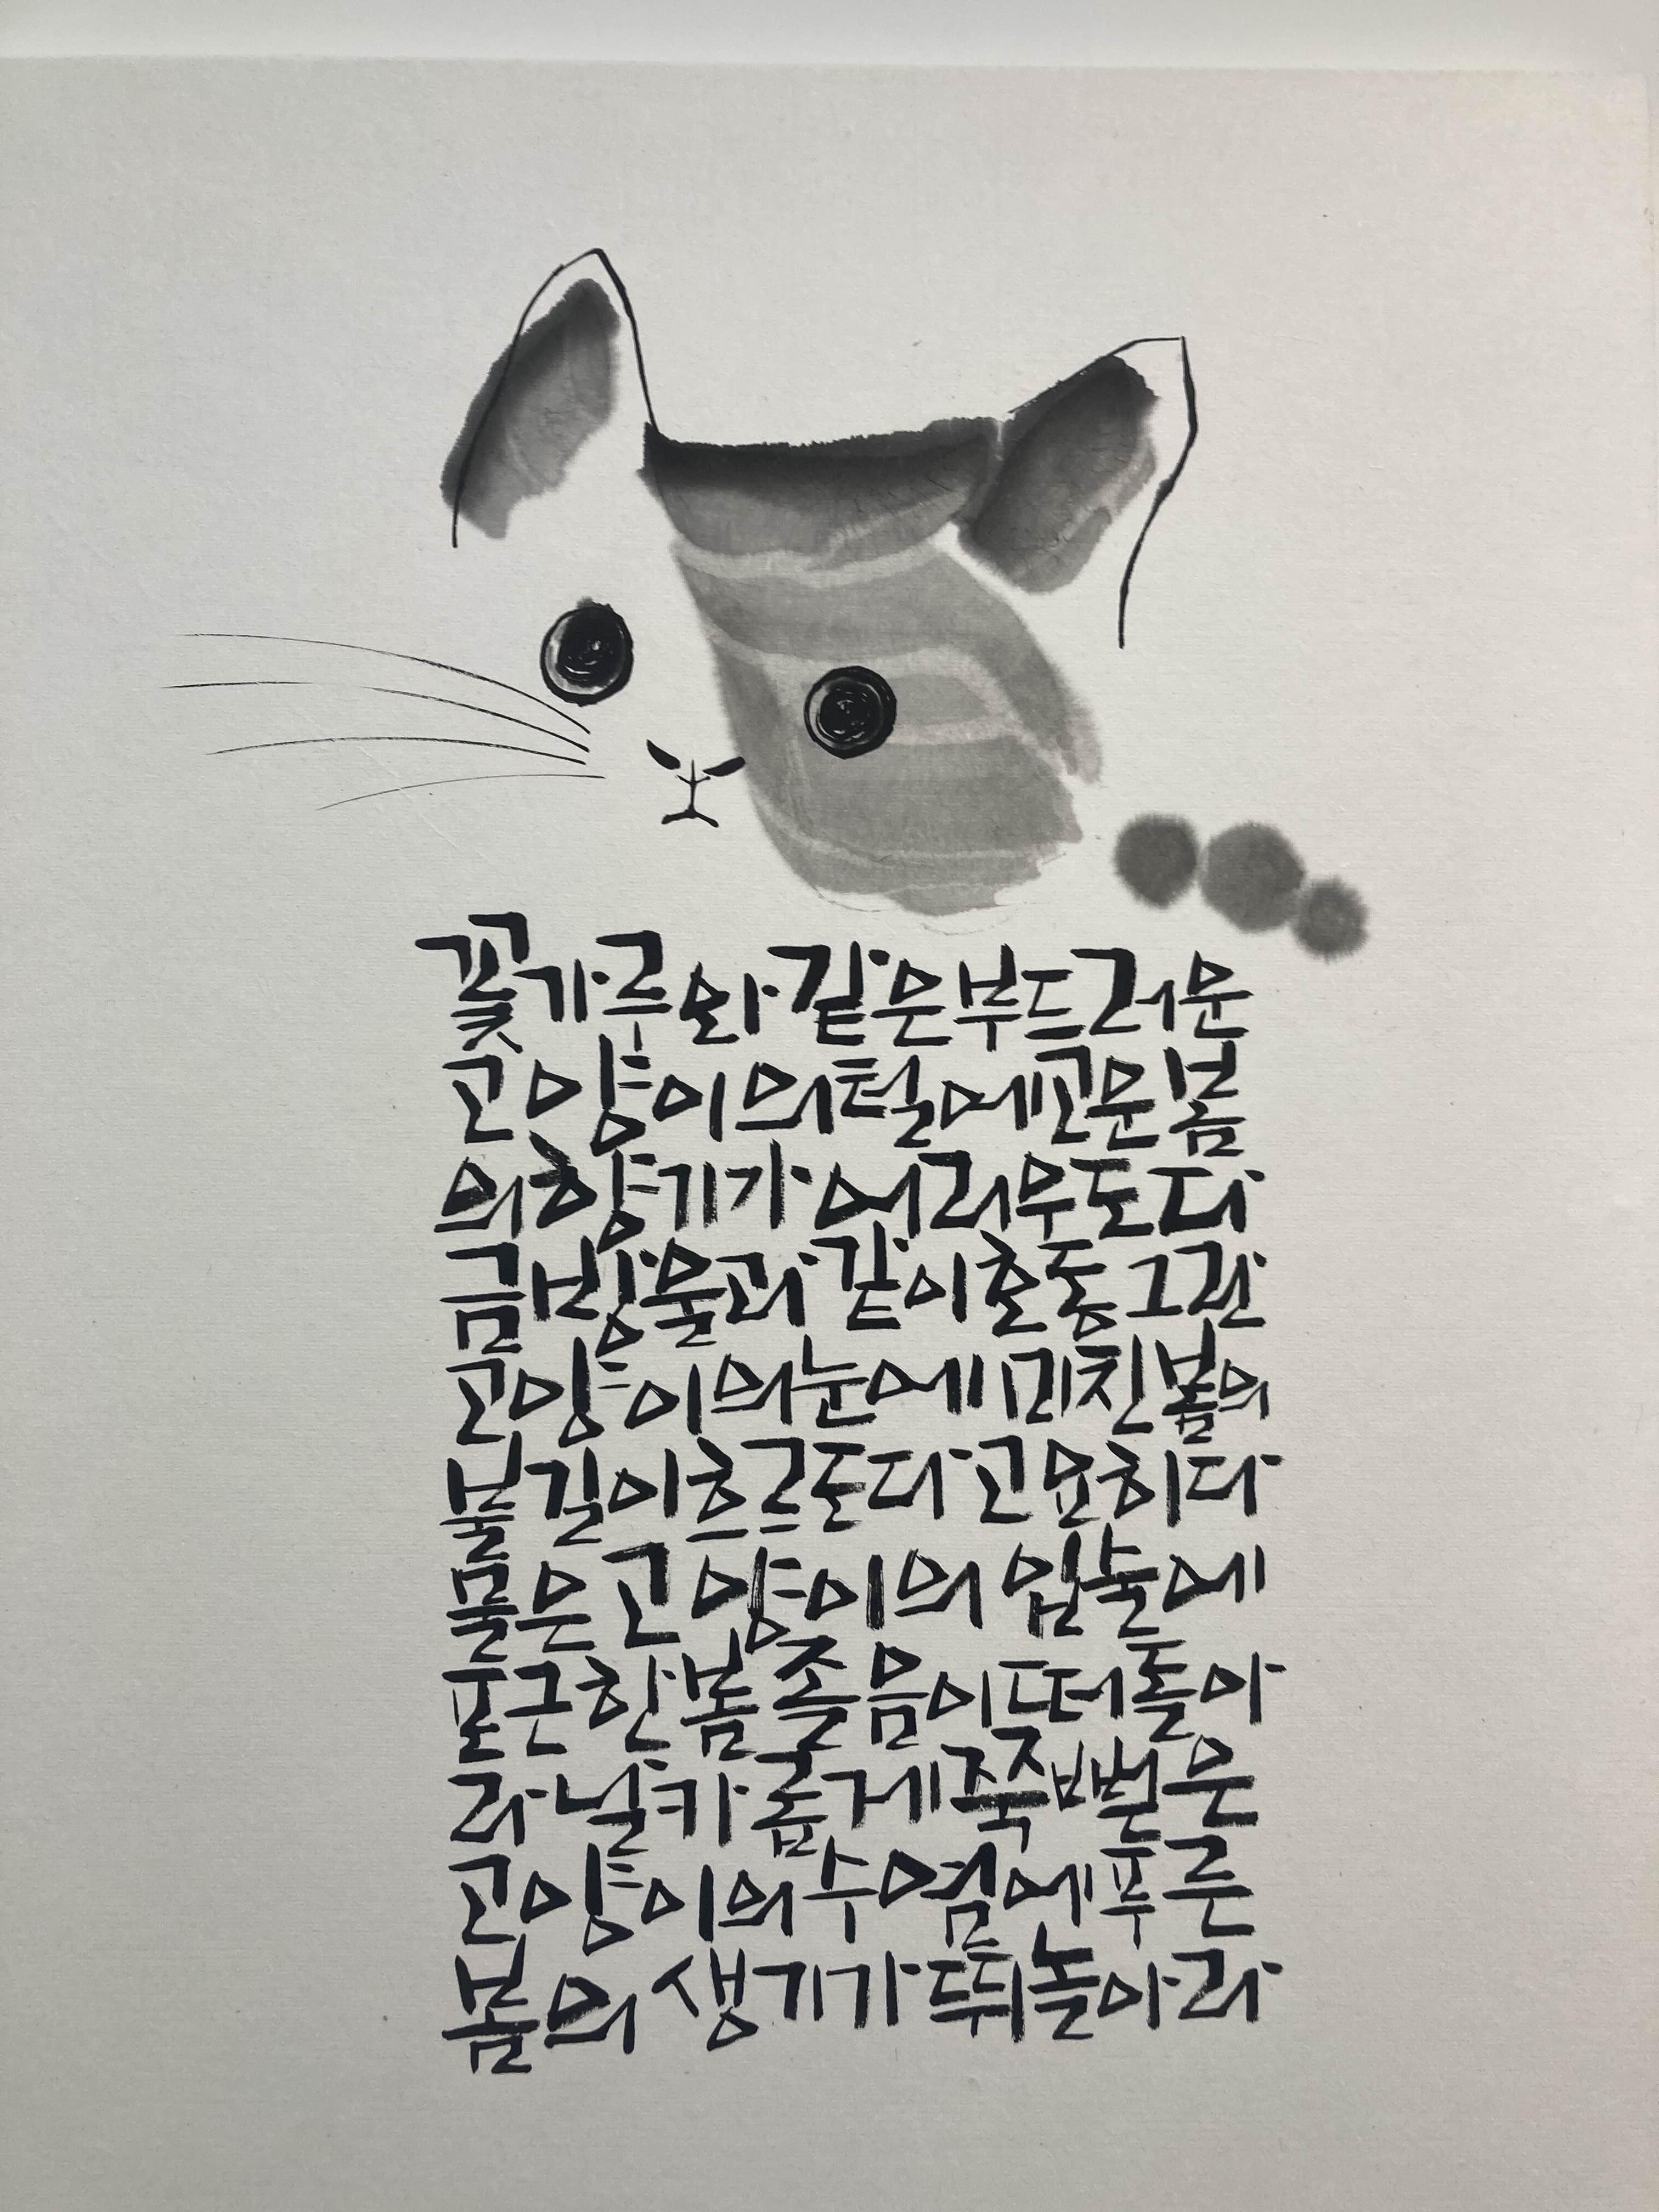 꽃가루와 같은 부드러운
고양이의 털에 고운 봄
의 향기가 어리우도다
금방울과 같이 호동그란
고양이의 눈에 미친 봄의
불길이 흐르도다 고요히 다
물은 고양이의 입술에
포근한 봄 졸음이 떠돌아
라 날카롭게 쭉 뻗은
고양이의 수염에 푸른
봄의 생기가 뛰놀아라